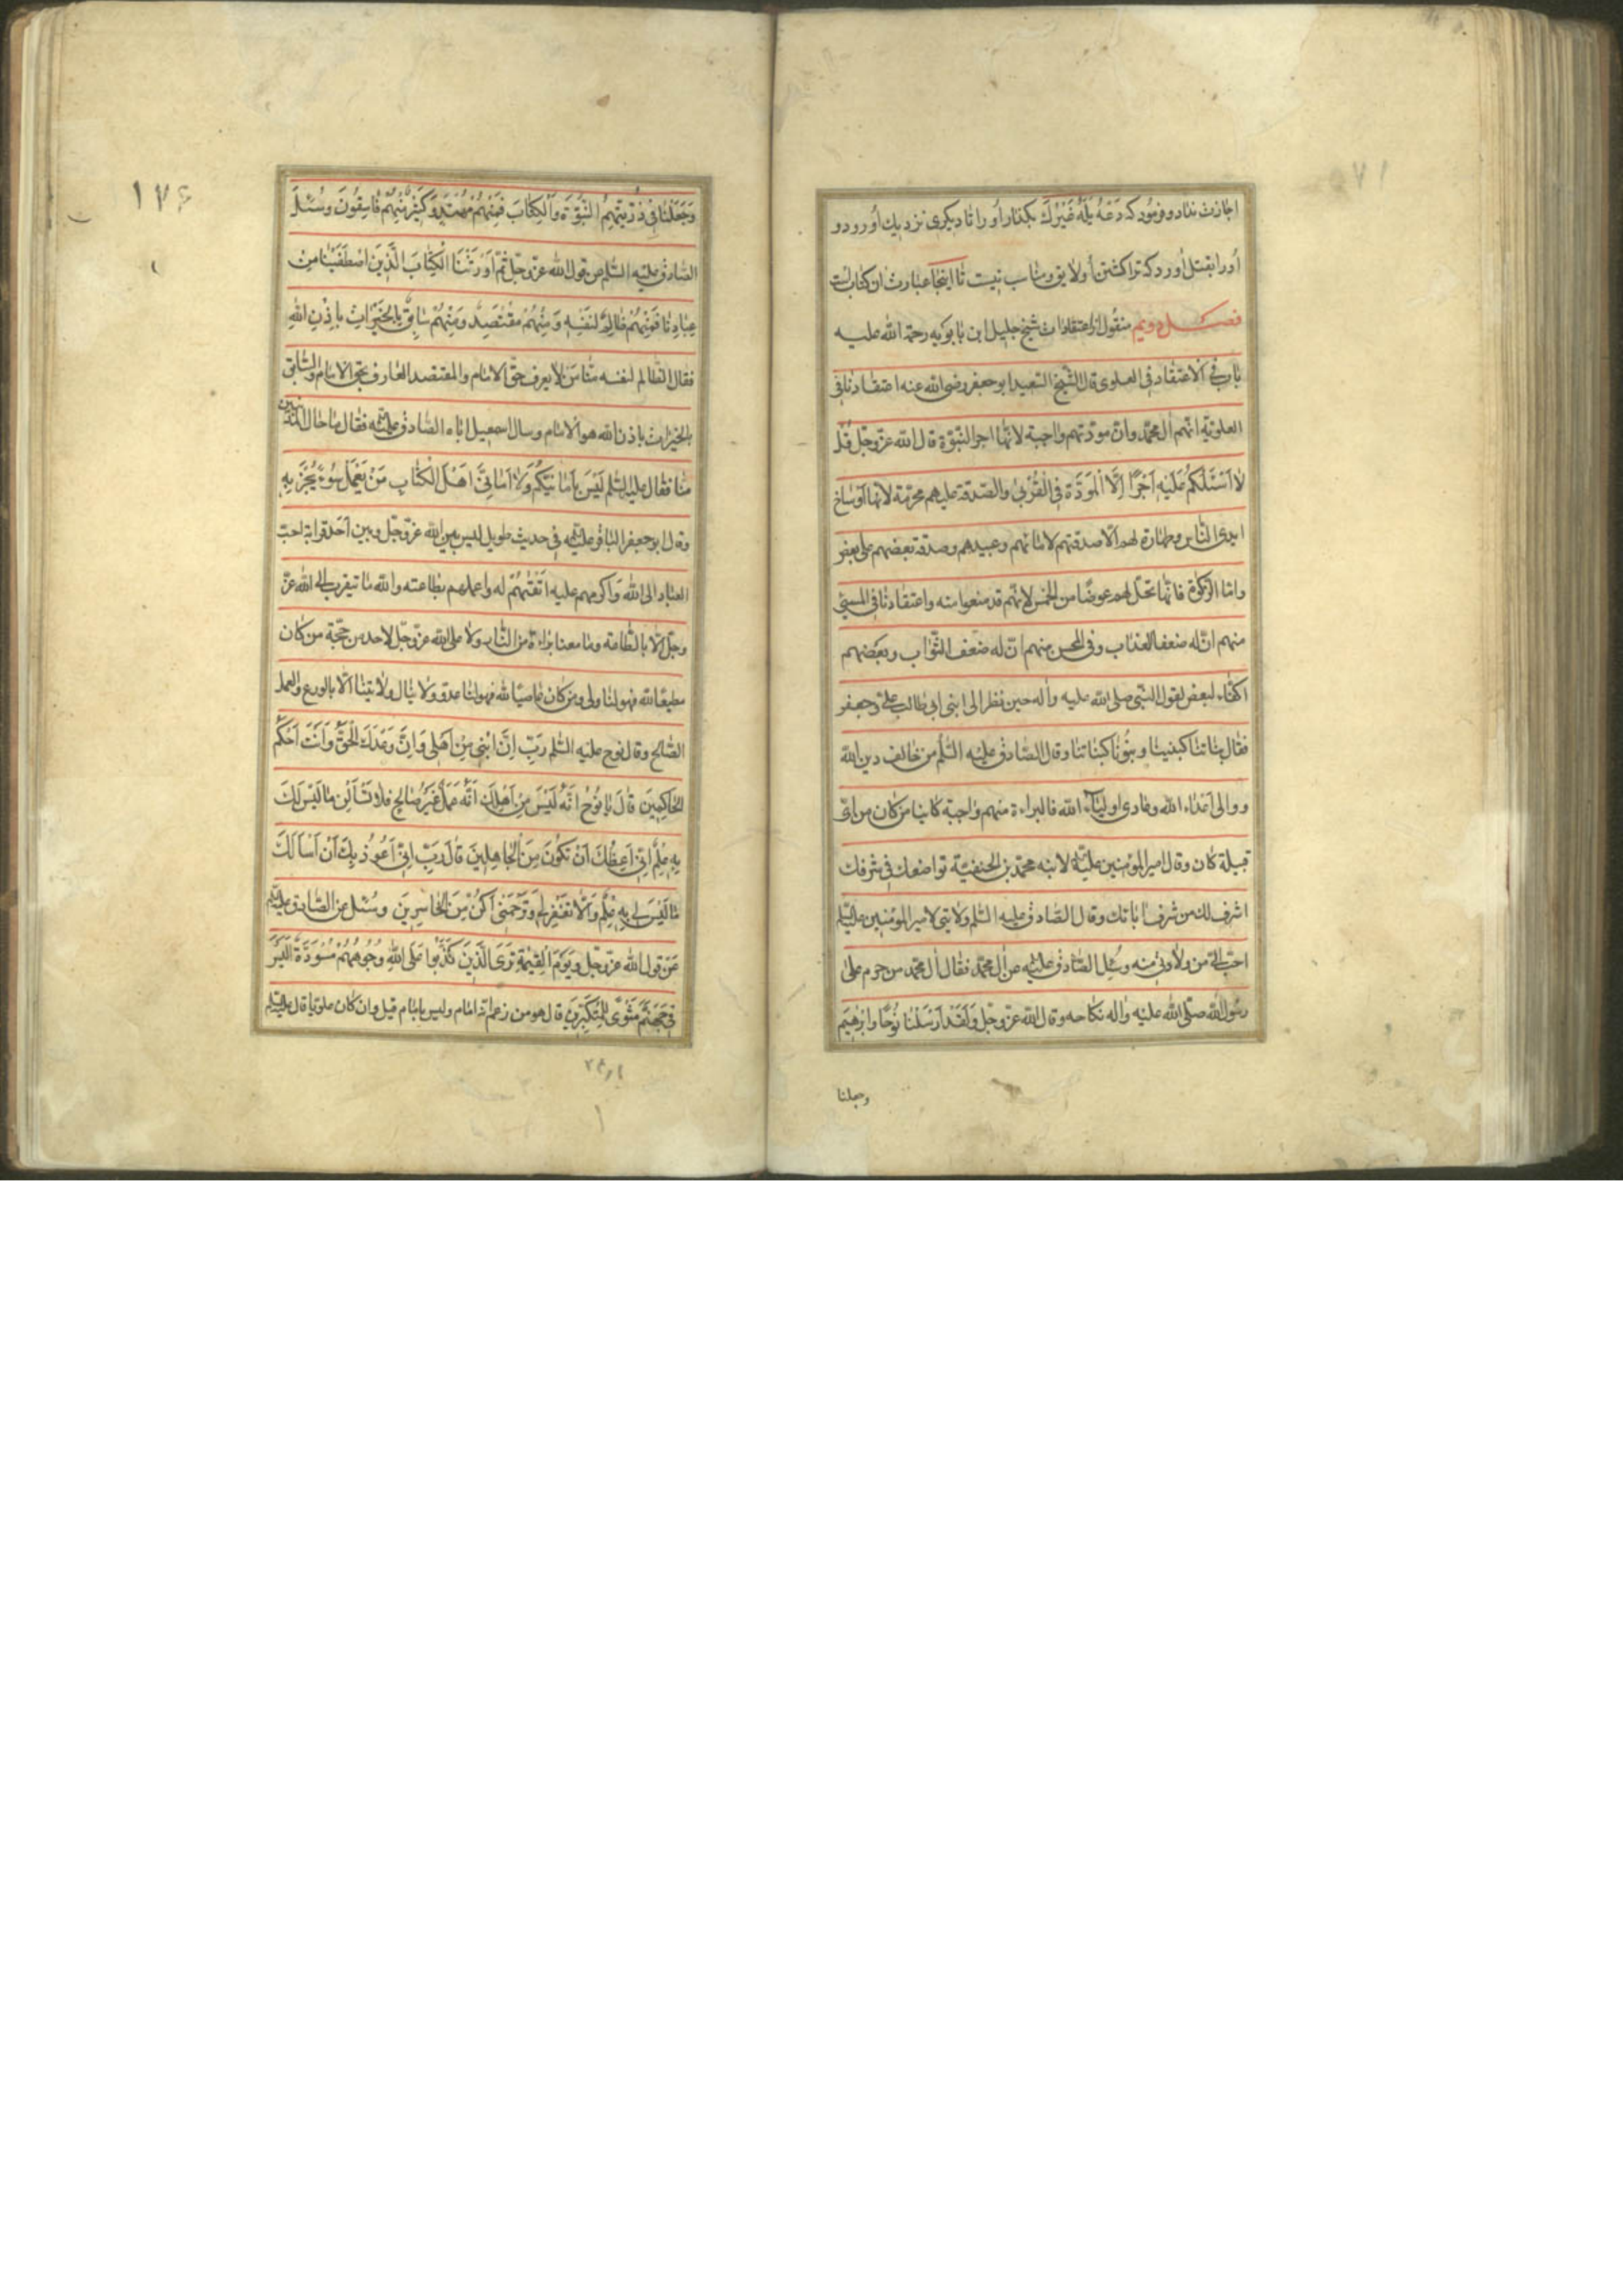 اجازت نداد و فرمود که دَعْهُ یَلِهُ غَیْرُكَ بگذار او را تا دیگری نزدیك اُو رود و
اُو را بقتل اُورد که ترا کشتن اُو لایق و مناسب نیست تا اینجا عبارت ان کتاب است
فصـــل دویم منقول از اعتقادات شیخ جلیل ابن بابویه رحمة الله علیـه
باب فی الاعتقاد فی العلوی قال الشّیخ السّعید ابو جعفر رضی الله عنه اعتقادنا فی
العلویّة انّهم اٰل محمّد وانّ مودّتهم واجبة لانّها اجر النّبوّة قال الله عزّ وجلّ قُلْ
لا اَسْئَلُكُمْ عَلَیْهِ اَجْرًا اِلَّا الْمَوَدَّةَ فِی الْقُرْبیٰ والصّدقة علیهم محرّمة لانها اوساخ
ایدی النّاس وطهارة لهم الّا صدقتهم لامائهم وعبیدهم وصدقة بعضهم علی بعض
وامّا الزّکوٰة فانّها تحلّ لهم عوضًا من الخمس لانّهم قد منعوا منه واعتقادنا فی المسیئ
منهم انّ له ضعف العذاب وفی المحسن منهم انّ له ضعف الثّواب وبعضهم
اکفاء لبعض لقول النّبی صلی الله علیه واٰله حین نظر الی ابنی ابی طالب علیّ وجعفر
فقال بناتنا کبنینا وبنُونا کبناتنا وقال الصّادق علیْه السّلٰم من خالف دین الله
ووالی اَعْدٰاء الله وعادی اولیٰاء الله فالبراءة منهم واجبة کاینا من کان من ایّ
قبیلة کان وقال امیر المؤمنین علیه السلم لابنه محمّد بن الحنفیّة تواضعك فی شرفك
اشرف لك من شرف اٰبائك وقال الصّادق علیه السّلم ولایتی لامیر المؤمنین علیه السّلم
احبّ الیّ من ولادتی منه وسُئِل الصّادق علیه السلم عن اٰل محمّد فقال اٰل محمّد من حرم علی
رسُول الله صلّی الله علیْه واٰله نکاحه وقال الله عزّ وجلّ وَلَقَدْ اَرْسَلْنا نُوحًا وابْرٰهِیمَ
وجعلنا
١٧٤
وَجَعَلْنٰا فِی ذُرّیَّتِهِمُ النُّبُوَّةَ وَالْكِتٰابَ فَمِنْهُمْ مُهْتَدٍ وَكَثِیرٌ مِنْهُمْ فٰاسِقُونَ وسُئلَ
الصّادق علیْه السّلم عن قول الله عزّ وجلّ ثُمَّ اَوْرَثْنَا الْكِتٰابَ الَّذِینَ اصْطَفَیْنٰا مِنْ
عِبٰادِنٰا فَمِنْهُمْ ظٰالِمٌ لِنَفْسِهِ وَمِنْهُمْ مُقْتَصِدٌ وَمِنْهُمْ سٰابِقٌ بِالْخَیْرٰاتِ بِاِذْنِ اللهِ
فقال الظّالم لنفسه منّا من لا یعرف حقّ الامام والمقتصد العارف بحقّ الامام والسّابق
بالخیرات باذن الله هو الامام وسال اسمعیل اباه الصّادق علیه السلم فقال ما حال المذنبین
منّا فقال علیه السّلم لَیْسَ بِاَمٰانِیِّكُمْ وَلٰا اَمٰانِیِّ اَهْلِ الْكِتٰابِ مَنْ یَعْمَلْ سُوءً یُجْزَ بِهِ
وقال ابو جعفر الباقر علیه السلم فی حدیث طویل لیس بین الله عزّ وجلّ وبین اَحَد قرابة احبّ
العباد الی الله وَاَکرمهم علیه اَتْقٰیهُمْ له واعملهم بطاعته والله ما تیقرب الی الله عزّ
وجلّ الّا بالطّاعة وما معنا براءة من النّار ولا علی الله عزّ وجلّ لاحد من حجّة من کان
مطیعًا لله فهو لنا ولی ومن کان عٰاصیًا لله فهو لنا عدوّ ولا ینال ولایتنا الّا بالورع والعمل
الصّالح وقال نوح علیه السّلم رَبِّ اِنَّ ابْنِی مِنْ اَهْلِی وَاِنَّ وَعْدَكَ الْحَقُّ وَاَنْتَ اَحْكَمُ
الْحٰاكِمِینَ قٰالَ یٰا نُوحُ اِنَّهُ لَیْسَ مِنْ اَهْلِكَ اِنَّهُ عَمَلٌ غَیْرُ صٰالِحٍ فَلٰا تَسْأَلْنِ مٰا لَیْسَ لَكَ
بِهِ عِلْمٌ اِنِّی اَعِظُكَ اَنْ تَكُونَ مِنَ الْجٰاهِلِینَ قٰالَ رَبِّ اِنِّی اَعُوذُ بِكَ اَنْ اَسْاَلَكَ
مٰا لَیْسَ لِی بِهِ عِلْمٌ وَاِلّٰا تَغْفِرْ لِی وَتَرْحَمْنِی اَكُنْ مِنَ الْخٰاسِرِینَ وسُئل عن الصّادق علیه السّلم
عَنْ قول الله عزّ وجلّ وَیَوْمَ الْقِیٰمَةِ تَرَی الَّذِینَ كَذَبُوا عَلَی اللهِ وُجُوهُهُمْ مُسْوَدَّةٌ اَلَیْسَ
فِی جَهَنَّمَ مَثْویً لِلْمُتَكَبِّرِینَ قال هو من زعم انّه امام ولیس بامام قیل وان کان علویّا قال علیه السّلم